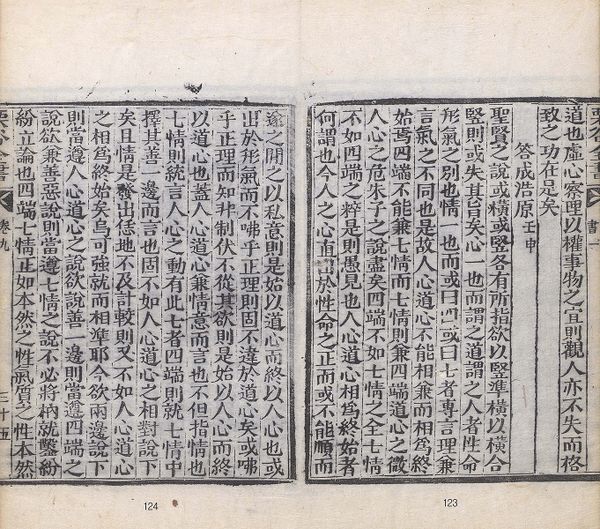 栗谷全書
書一
道也虛心察理以權事物之宜則觀人亦不失而格
致之功在是矣
答成浩原 壬申
聖賢之說或橫或竪各有所指欲以竪準橫以橫合
竪則或失其旨矣心一也而謂之道謂之人者性命
形氣之別也情一也而或曰四或曰七者專言理兼
言氣之不同也是故人心道心不能相兼而相爲終
始焉四端不能兼七情而七情則兼四端道心之微
人心之危朱子之說盡矣四端不如七情之全七情
不如四端之粹是則愚見也人心道心相爲終始者
何謂也今人之心直出於性命之正而或不能順而
遂之間之以私意則是始以道心而終以人心也或
出於形氣而不咈乎正理則固不違於道心矣或咈
乎正理而知非制伏不從其欲則是始以人心而終
以道心也蓋人心道心兼情意而言也不但指情也
七情則統言人心之動有此七者四端則就七情中
擇其善一邊而言也固不如人心道心之相對說下
矣且情是發出恁地不及計較則又不如人心道心
之相爲終始矣烏可強就而相準耶今欲兩邊說下
則當遵人心道心之說欲說善一邊則當遵四端之
說欲兼善惡說則當遵七情之說不必將枘就鑿紛
紛立論也四端七情正如本然之性氣質之性本然
栗谷全書
卷九
三十五
123
124